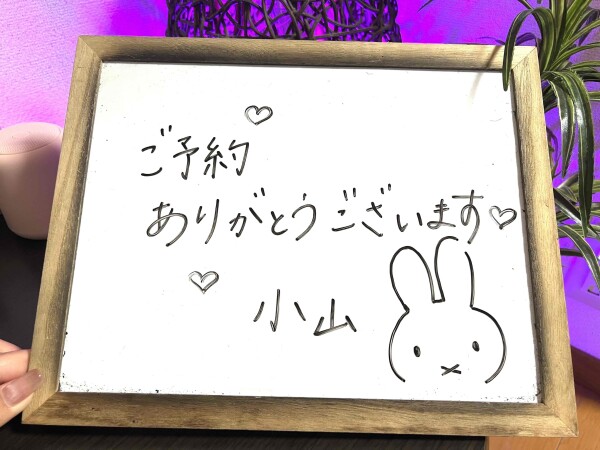 ご予約
ありがとうございます♡
小山